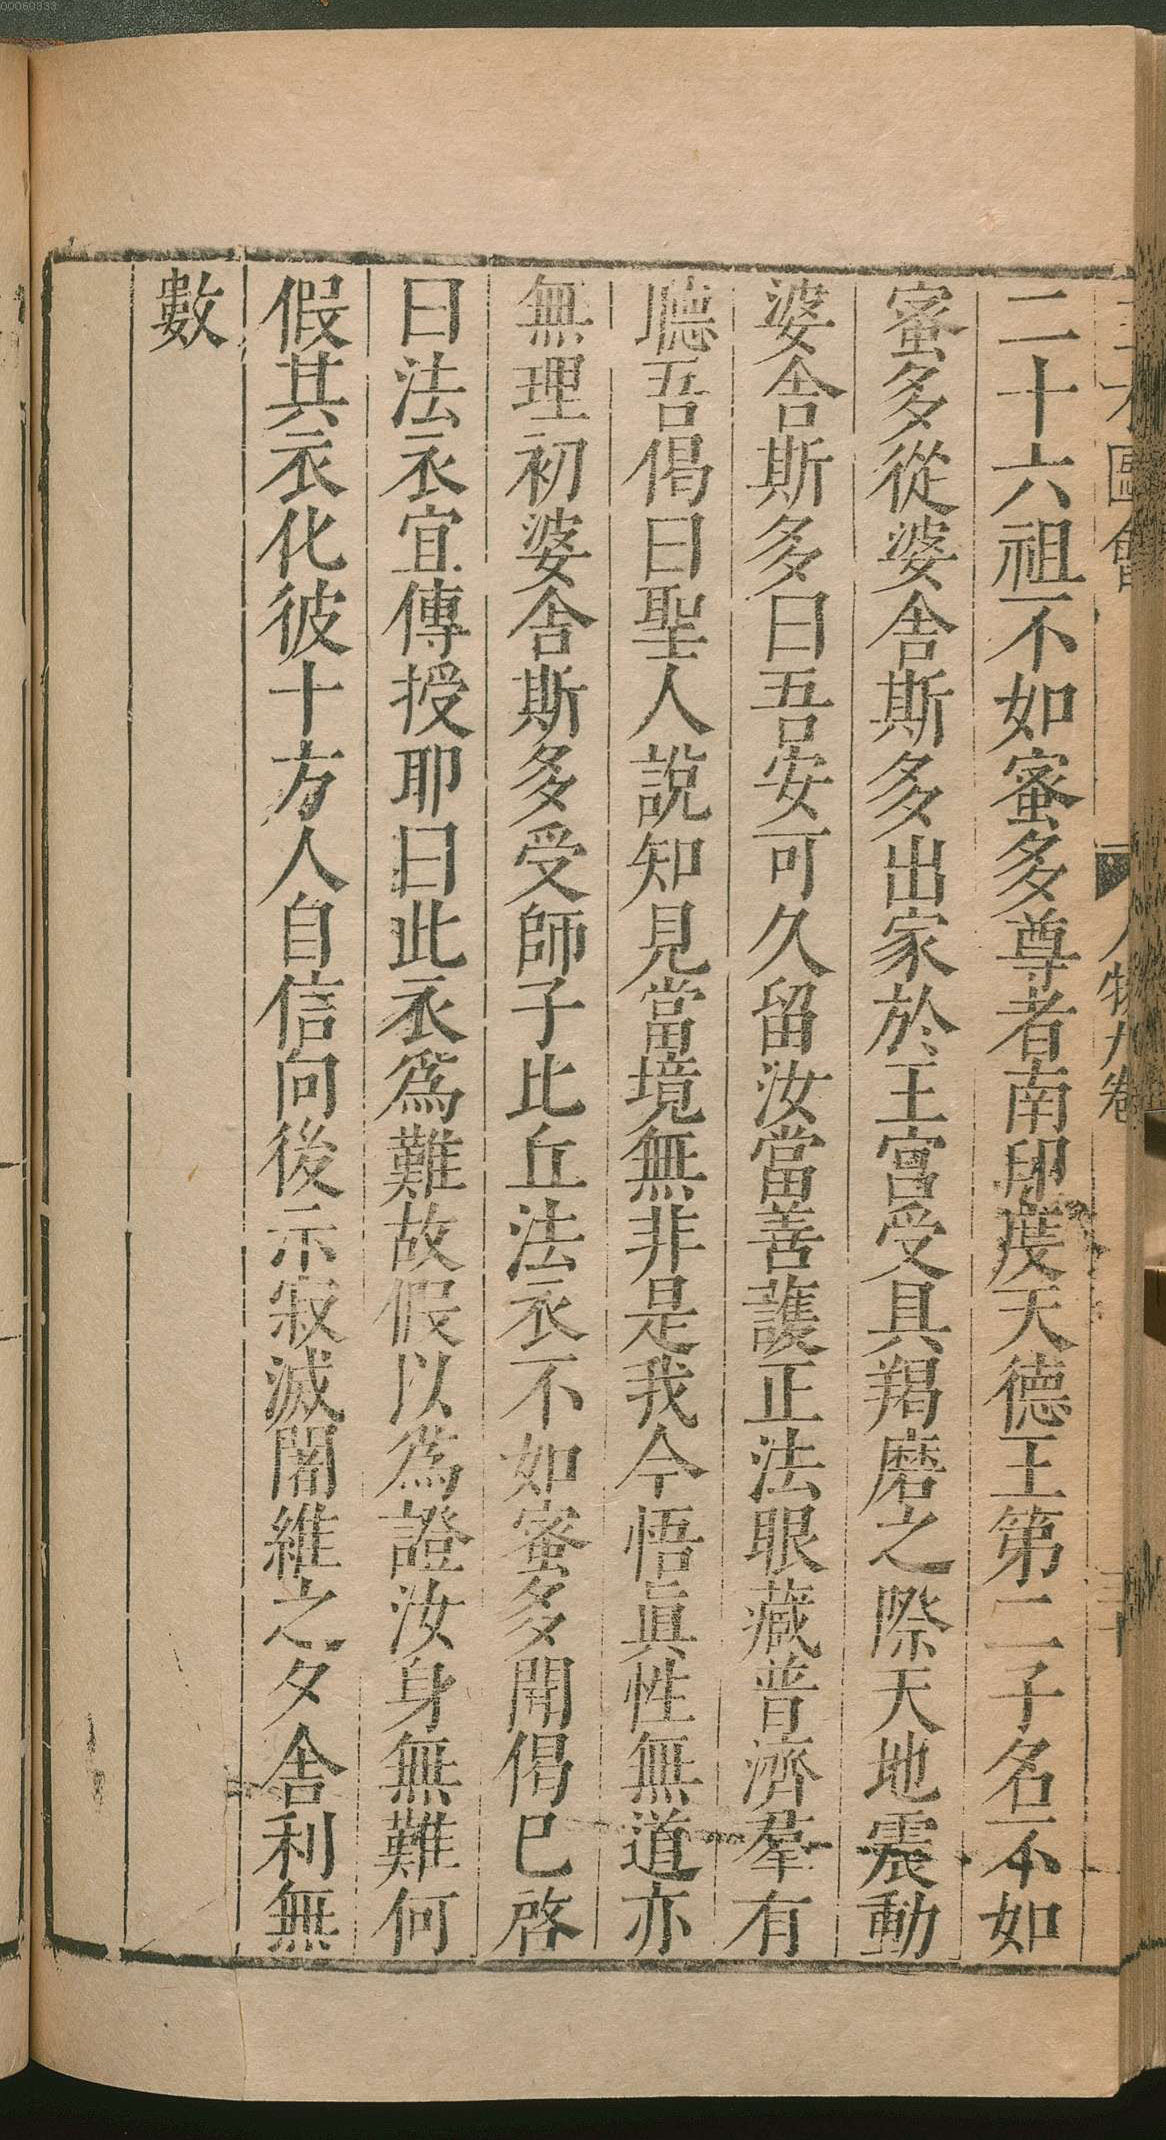 00060333
三才圖會
人物九卷
三十
二十六祖不如蜜多尊者南印度天德王第二子名不如
蜜多從婆舍斯多出家於王宮受具羯磨之際天地震動
婆舍斯多曰吾安可久留汝當善護正法眼藏普濟羣有
聽吾偈曰聖人說知見當境無非是我今悟眞性無道亦
無理初婆舍斯多受師子比丘法衣不如蜜多聞偈已啓
曰法衣宜傳授耶曰此衣爲難故假以爲證汝身無難何
假其衣化彼十方人自信向後示寂滅闍維之夕舍利無
數